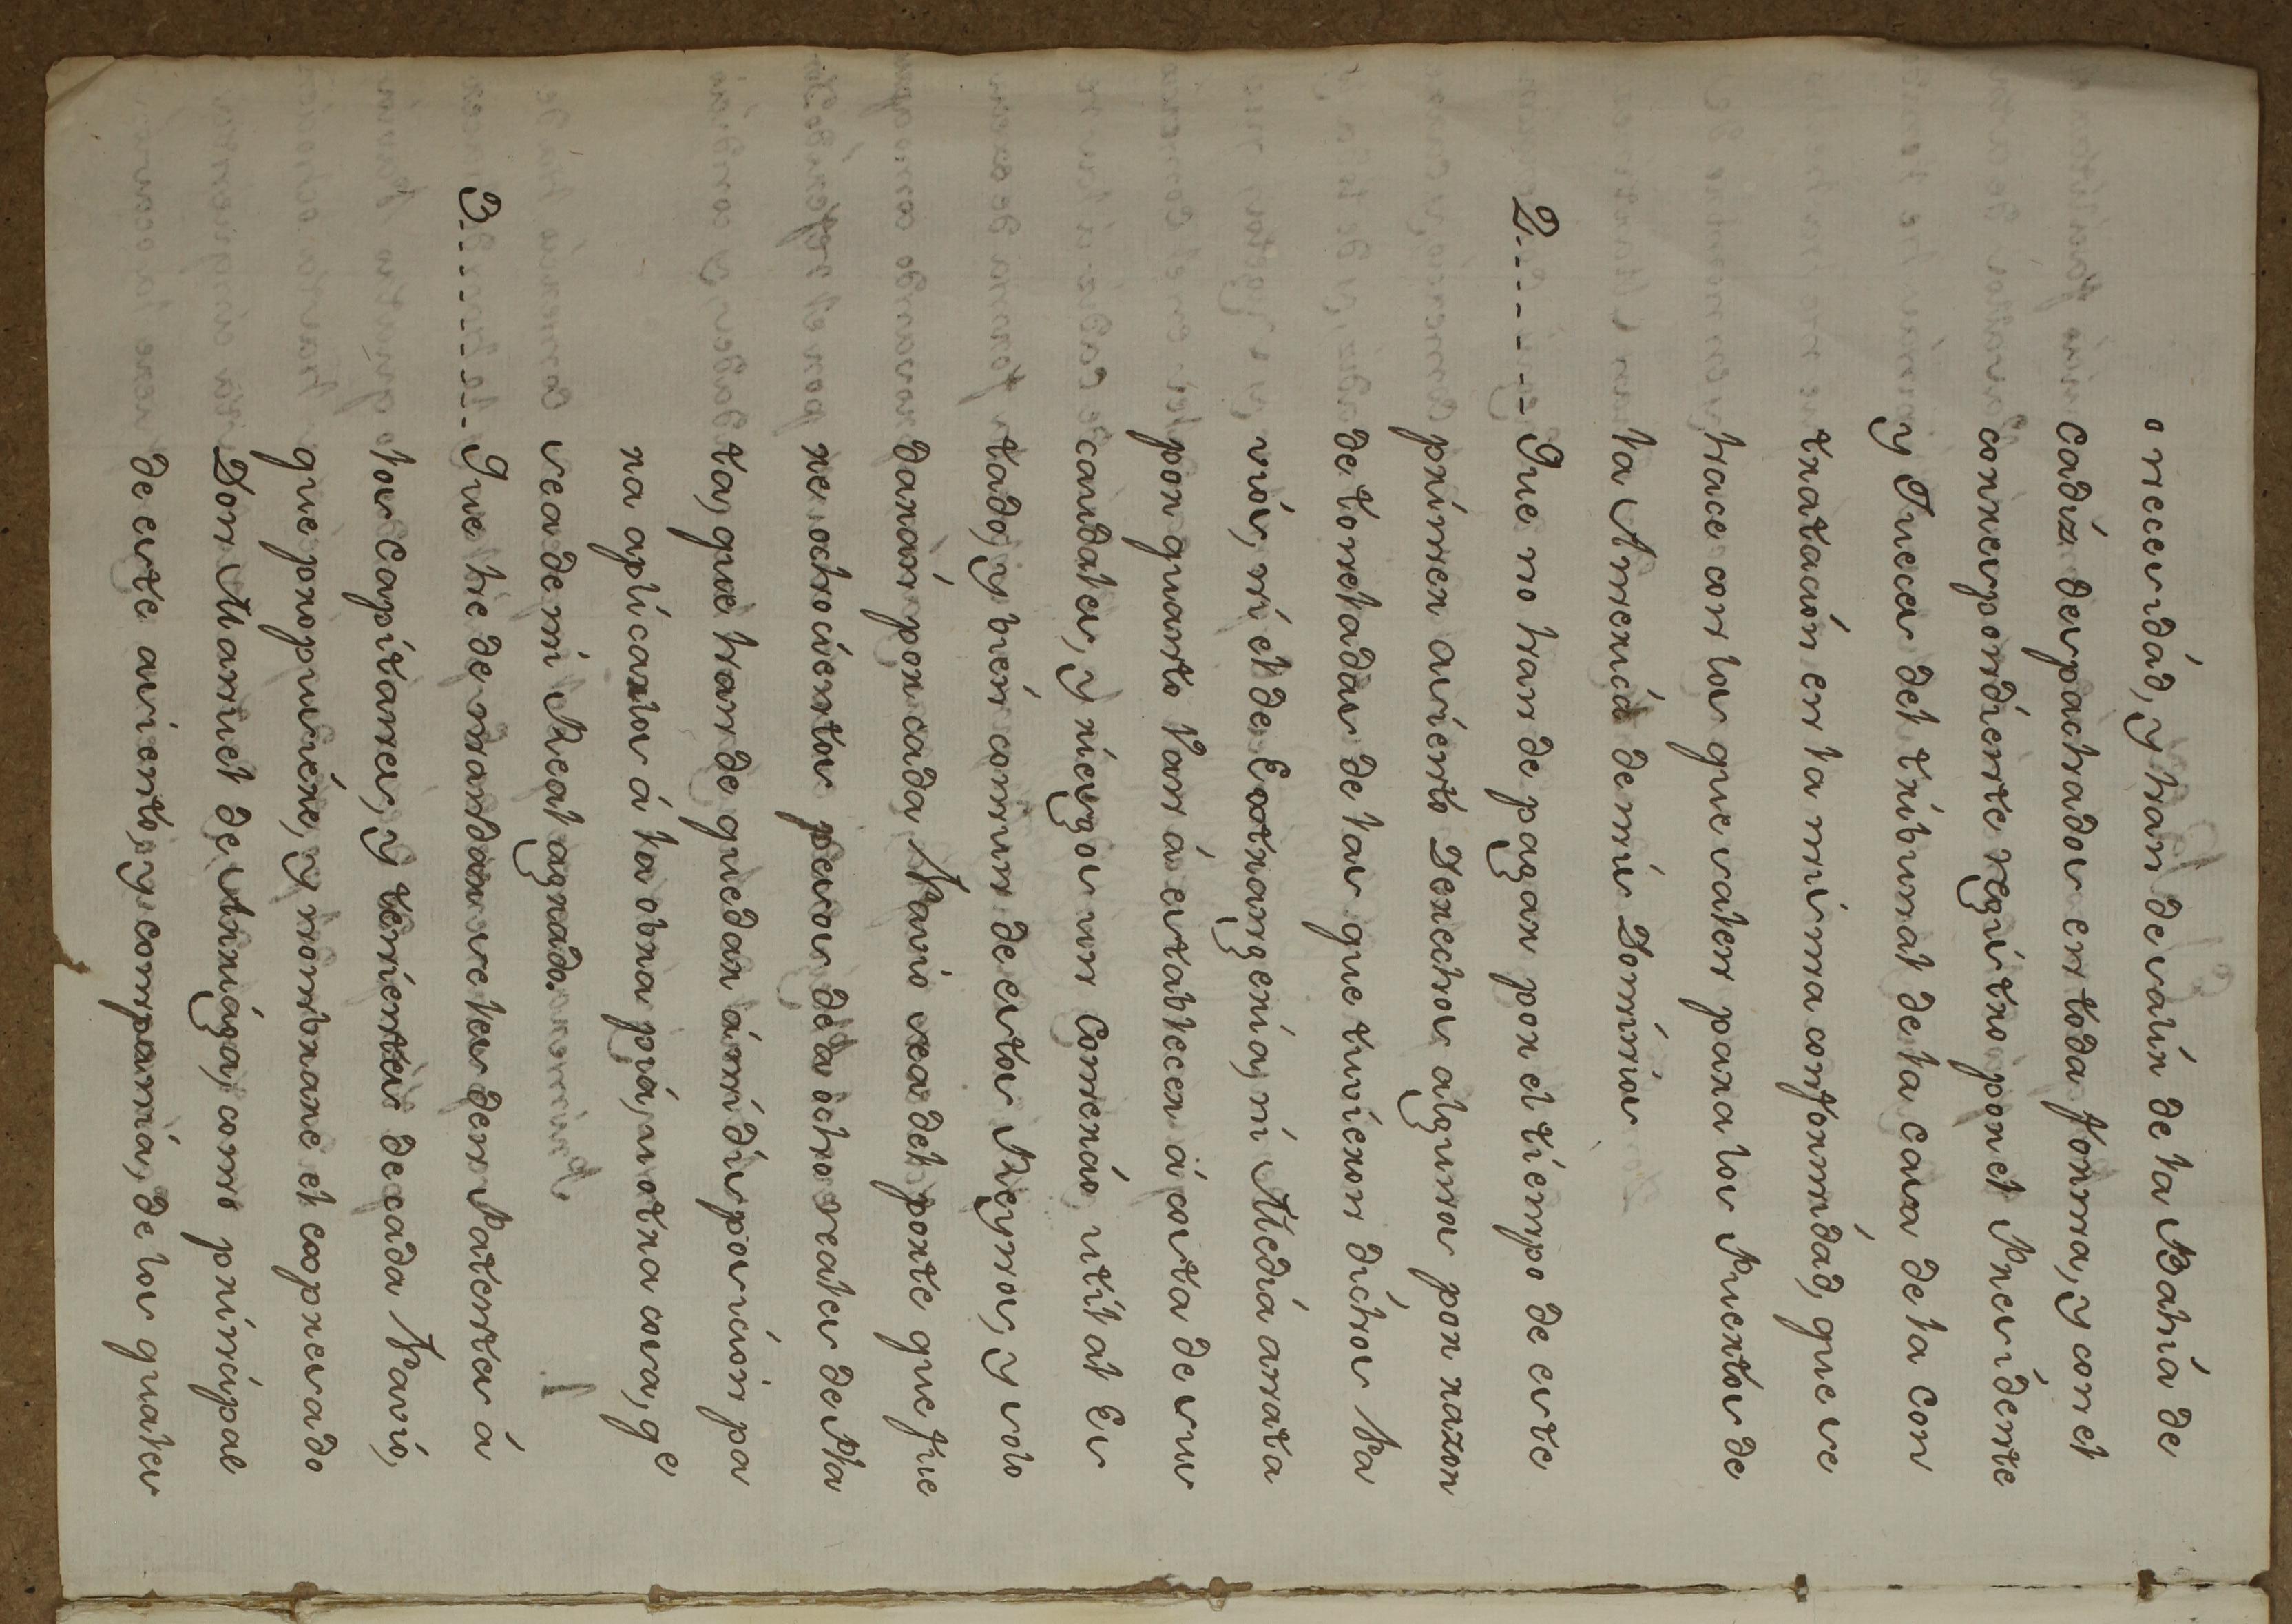 o necesidád, y han de salir de la Bahia de
Cadiz despachados en toda forma, y con el
correspondiente registro por el Presidente
y Jueces del tribunal de la casa de la Con
tratación en la misma conformidad, que se
hace con los que salen para los Puertos de
la America de mis Dominios
2. - - - - - - - Que no han de pagar por el tiempo de este
primer asiento Derechos algunos por razon
de toneladas de las que tuvieren dichos Na
vios, ni el de Extrangeria, ni Media anata
por quanto Van á establecer á costa de sus
caudales, y riesgos un Comercio util al Es
tado, y bien comun de estos Reynos, y solo
darán por cada Navio sea del porte que fue
re ochocientos pesos de a ocho reales de Pla
ta, que han de quedar á mi disposicion pa
ra aplicarlos á la obra pia, u otra cosa, qe
sea de mi Real agrado.
3. - - - - - - - Que he de mandar se les den Patentes á
los Capitanes, y tenientes de cada Navio,
que propusiere, y nombrare el expresado
Don Manuel de Arriaga, como principal
de este asiento, y compania, de los quales